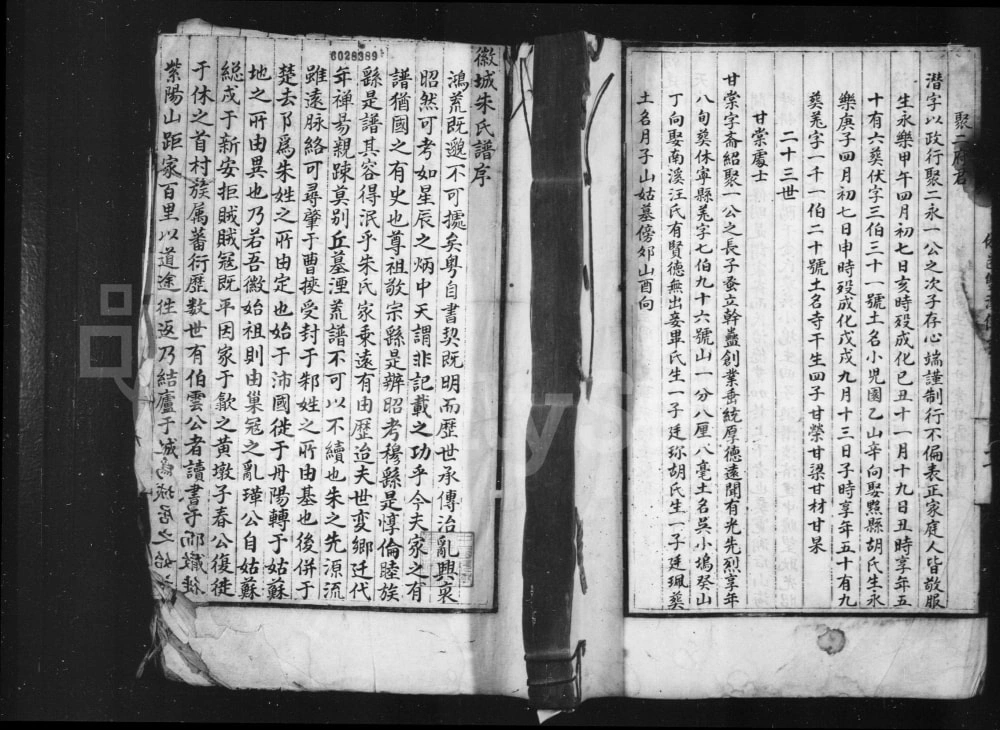 聚二府君
潜字以政行聚二永一公之次子存心端謹制行不偏表正家庭人皆敬服
生永樂甲午四月初七日亥時殁成化己丑十一月十九日丑時享年五
十有六葬伏字三伯三十一號土名小児園乙山辛向娶黟縣胡氏生永
樂庚子四月初七日申時殁成化戊戌九月十三日子時享年五十有九
葬羗字一千一伯二十號土名寺干生四子甘榮甘梁甘材甘杲
二十三世
甘棠處士
甘棠字斋紹聚一公之長子蚤立幹蠱創業垂統厚德遠聞有光先烈享年
八旬葬休寧縣羗字七伯九十六號山一分八厘八毫土名吳小塢癸山
丁向娶南溪汪氏有賢德無出妾畢氏生一子廷珎胡氏生一子廷珮葬
土名月子山姑墓傍夘山酉向
6028389
徽城朱氏譜序
鴻荒既邈不可攄矣粤自書契既明而歷世承傳治亂興衰
昭然可考如星辰之炳中天謂非記載之功乎今夫家之有
譜猶國之有史也尊祖敬宗繇是辨昭考穆繇是惇倫睦族
繇是譜其容得泯乎朱氏家乗遠有由歷迨夫世变鄉迁代
年禅昜親踈莫別丘墓湮荒譜不可以不續也朱之先源流
雖遠脉絡可尋肇于曹挾受封于邾姓之所由基也後併于
楚去阝爲朱姓之所由定也始于沛國徙于丹陽轉于姑蘇
地之所由異也乃若吾徽始祖則由巢冠之亂璋公自姑蘇
総戍于新安拒賊賊冦既平因家于歙之黄墩子春公復徙
于休之首村族属蕃衍歷数世有伯雲公者讀書于
紫陽山距家百里以道途徃返乃結廬于城